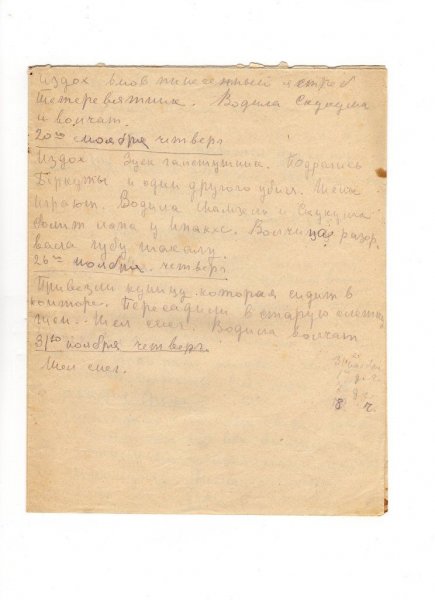 издох вновь принесенный ястреб
Тетеревятник. Водила Скукума
и волчат.
20го ноября четверг
Издох Зуек галстушник. Подрались
Беркуты и один другого убил. Щенки
играют. Водила и Скукума
болит лапа у Волчица разор
вала губу шакалу.
26го ноября четверг
Привезли куницу которая сидит в
конторе. Пересадили в старую клетку
Шел снег. Водила волчат
31го ноября четверг.
Шел снег.
8 ч.